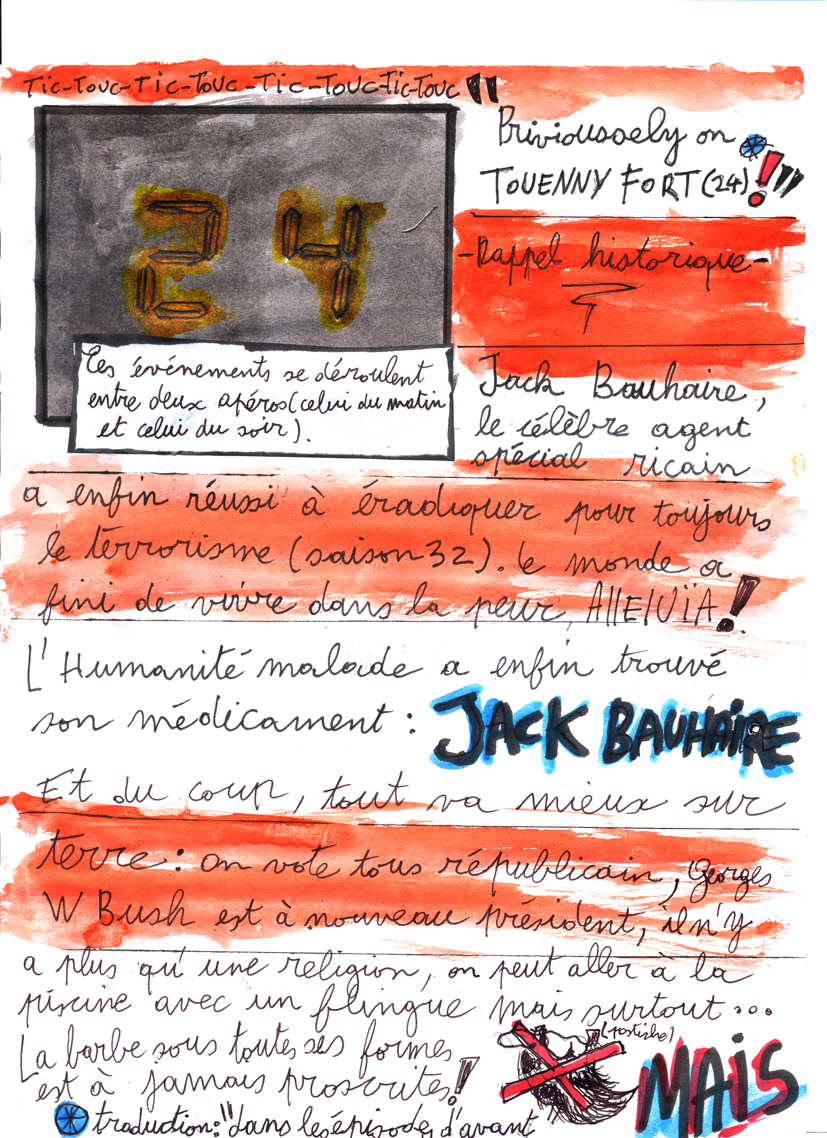 Tic-Touc-Tic-Touc-Tic-Touc-Tic-Touc
"Priviousoely on
TOUENNY FORT (24)!"
24
Les événements se déroulent
entre deux apéros (celui du matin
et celui du soir).
-Rappel historique-
Jack Bauhaire,
le célèbre agent
spécial ricain
a enfin réussi à éradiquer pour toujours
le terrorisme (saison 32). Le monde a
fini de vivre dans la peur, AllEluïA!
L'Humanité malade a enfin trouvé
son médicament : JACK BAUHAIRE
Et du coup, tout va mieux sur
terre : on vote tous républicain, Georges
W Bush est à nouveau président, il n'y
a plus qu'une religion, on peut aller à la
piscine avec un flingue mais surtout...
La barbe sous toutes ses formes
est à jamais proscrites!
(postiche)
MAIS
traduction: "dans les épisodes d'avant